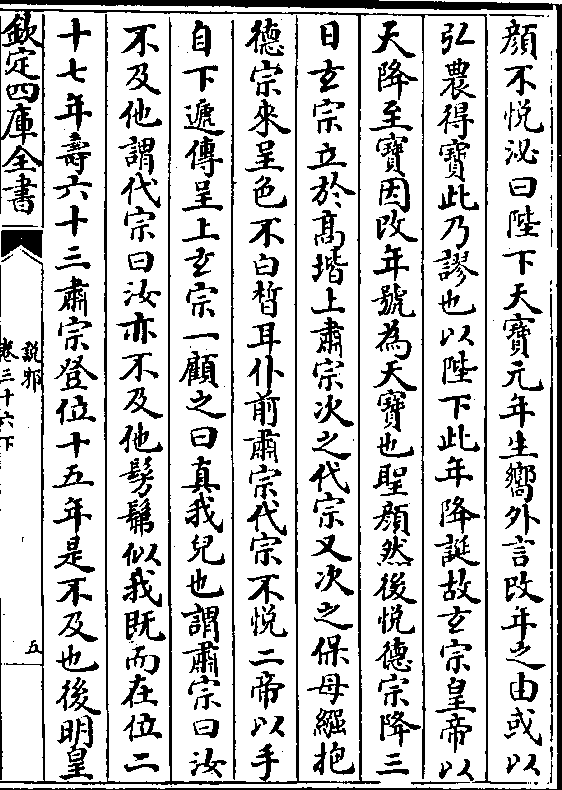 顔不悦泌曰陛下天寳元年生嚮外言改年之由或以
弘農得寳此乃謬也以陛下此年降誕故𤣥宗皇帝以
天降至寳因改年號為天寳也聖顔然後悦德宗降三
日𤣥宗立於髙堦上肅宗次之代宗又次之保母繈抱
德宗來呈色不白晳耳仆前肅宗代宗不悦二帝以手
自下遞傳呈上𤣥宗一顧之曰真我兒也謂肅宗曰汝
不及他謂代宗曰汝亦不及他髣髴似我既而在位二
十七年壽六十三肅宗登位十五年是不及也後明皇
欽定四庫全書
說郛
卷三十六下
五